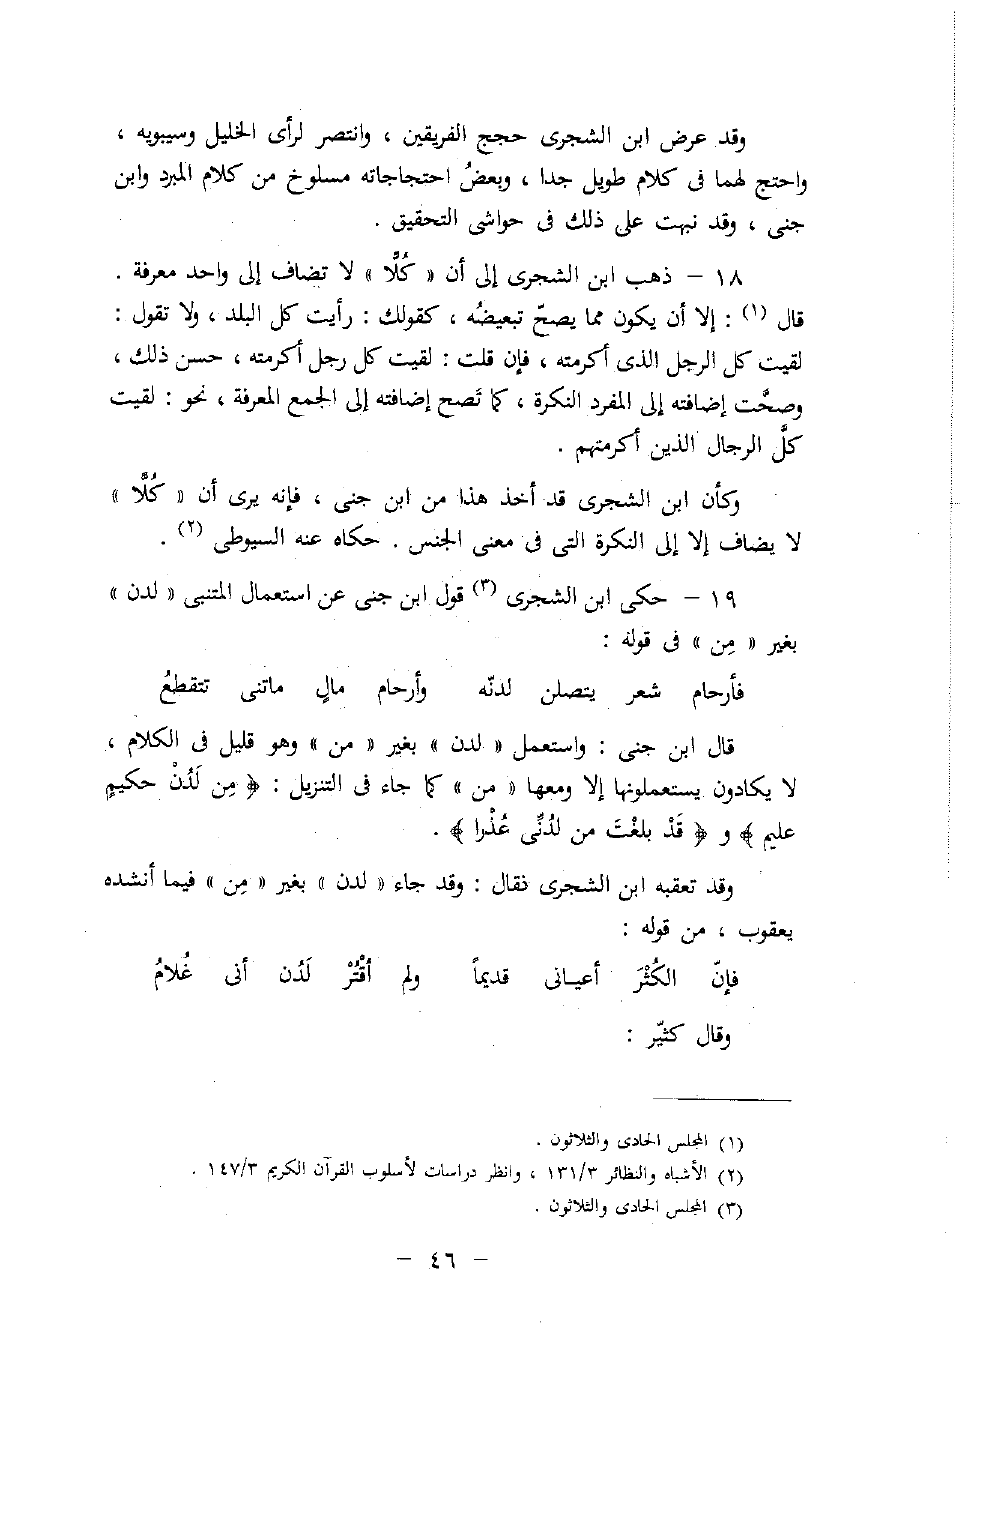 وقد عرض ابن الشجرى حجج الفريقين ، وانتصر لرأى الخليل وسيبويه ،
واحتج لهما فى كلام طويل جدا ، وبعضُ احتجاجاته مسلوخ من كلام المبرد وابن
جنى ، وقد نبهت على ذلك فى حواشى التحقيق .
١٨ – ذهب ابن الشجرى إلى أن « كُلًّا » لا تضاف إلى واحد معرفة .
قال (١) : إلا أن يكون مما يصحّ تبعيضُه ، كقولك : رأيت كل البلد ، ولا تقول :
لقيت كل الرجل الذى أكرمته ، فإن قلت : لقيت كل رجل أكرمته ، حسن ذلك ،
وصحَّت إضافته إلى المفرد النكرة ، كما تَصح إضافته إلى الجمع المعرفة ، نحو : لقيت
كلَّ الرجال الذين أكرمتهم .
وكأن ابن الشجرى قد أخذ هذا من ابن جنى ، فإنه يرى أن « كُلًّا »
لا يضاف إلا إلى النكرة التى فى معنى الجنس . حكاه عنه السيوطى (٢) .
١٩ – حكى ابن الشجرى (٣) قول ابن جنى عن استعمال المتنبى « لدن »
بغير « مِن » فى قوله :
فأرحام شعر يتصلن لدنّه وأرحام مالٍ ماتنى تتقطعُ
قال ابن جنى : واستعمل « لدن » بغير « من » وهو قليل فى الكلام ،
لا يكادون يستعملونها إلا ومعها « من » كما جاء فى التنزيل : ﴿ مِن لَدُنْ حكيمٍ
عليم ﴾ و ﴿ قَدْ بلغْتَ من لدُنِّى عُذْرا ﴾ .
وقد تعقبه ابن الشجرى فقال : وقد جاء « لدن » بغير « مِن » فيما أنشده
يعقوب ، من قوله :
فإنّ الكُثْرَ أعيانى قديماً ولم أُقْتُرْ لَدُن أنى غُلامُ
وقال كثيّر :
(١) المجلس الحادى والثلاثون .
(٢) الأشباه والنظائر ١٣١/٣ ، وانظر دراسات لأسلوب القرآن الكريم ١٤٧/٣ .
(٣) المجلس الحادى والثلاثون .
– ٤٦ –